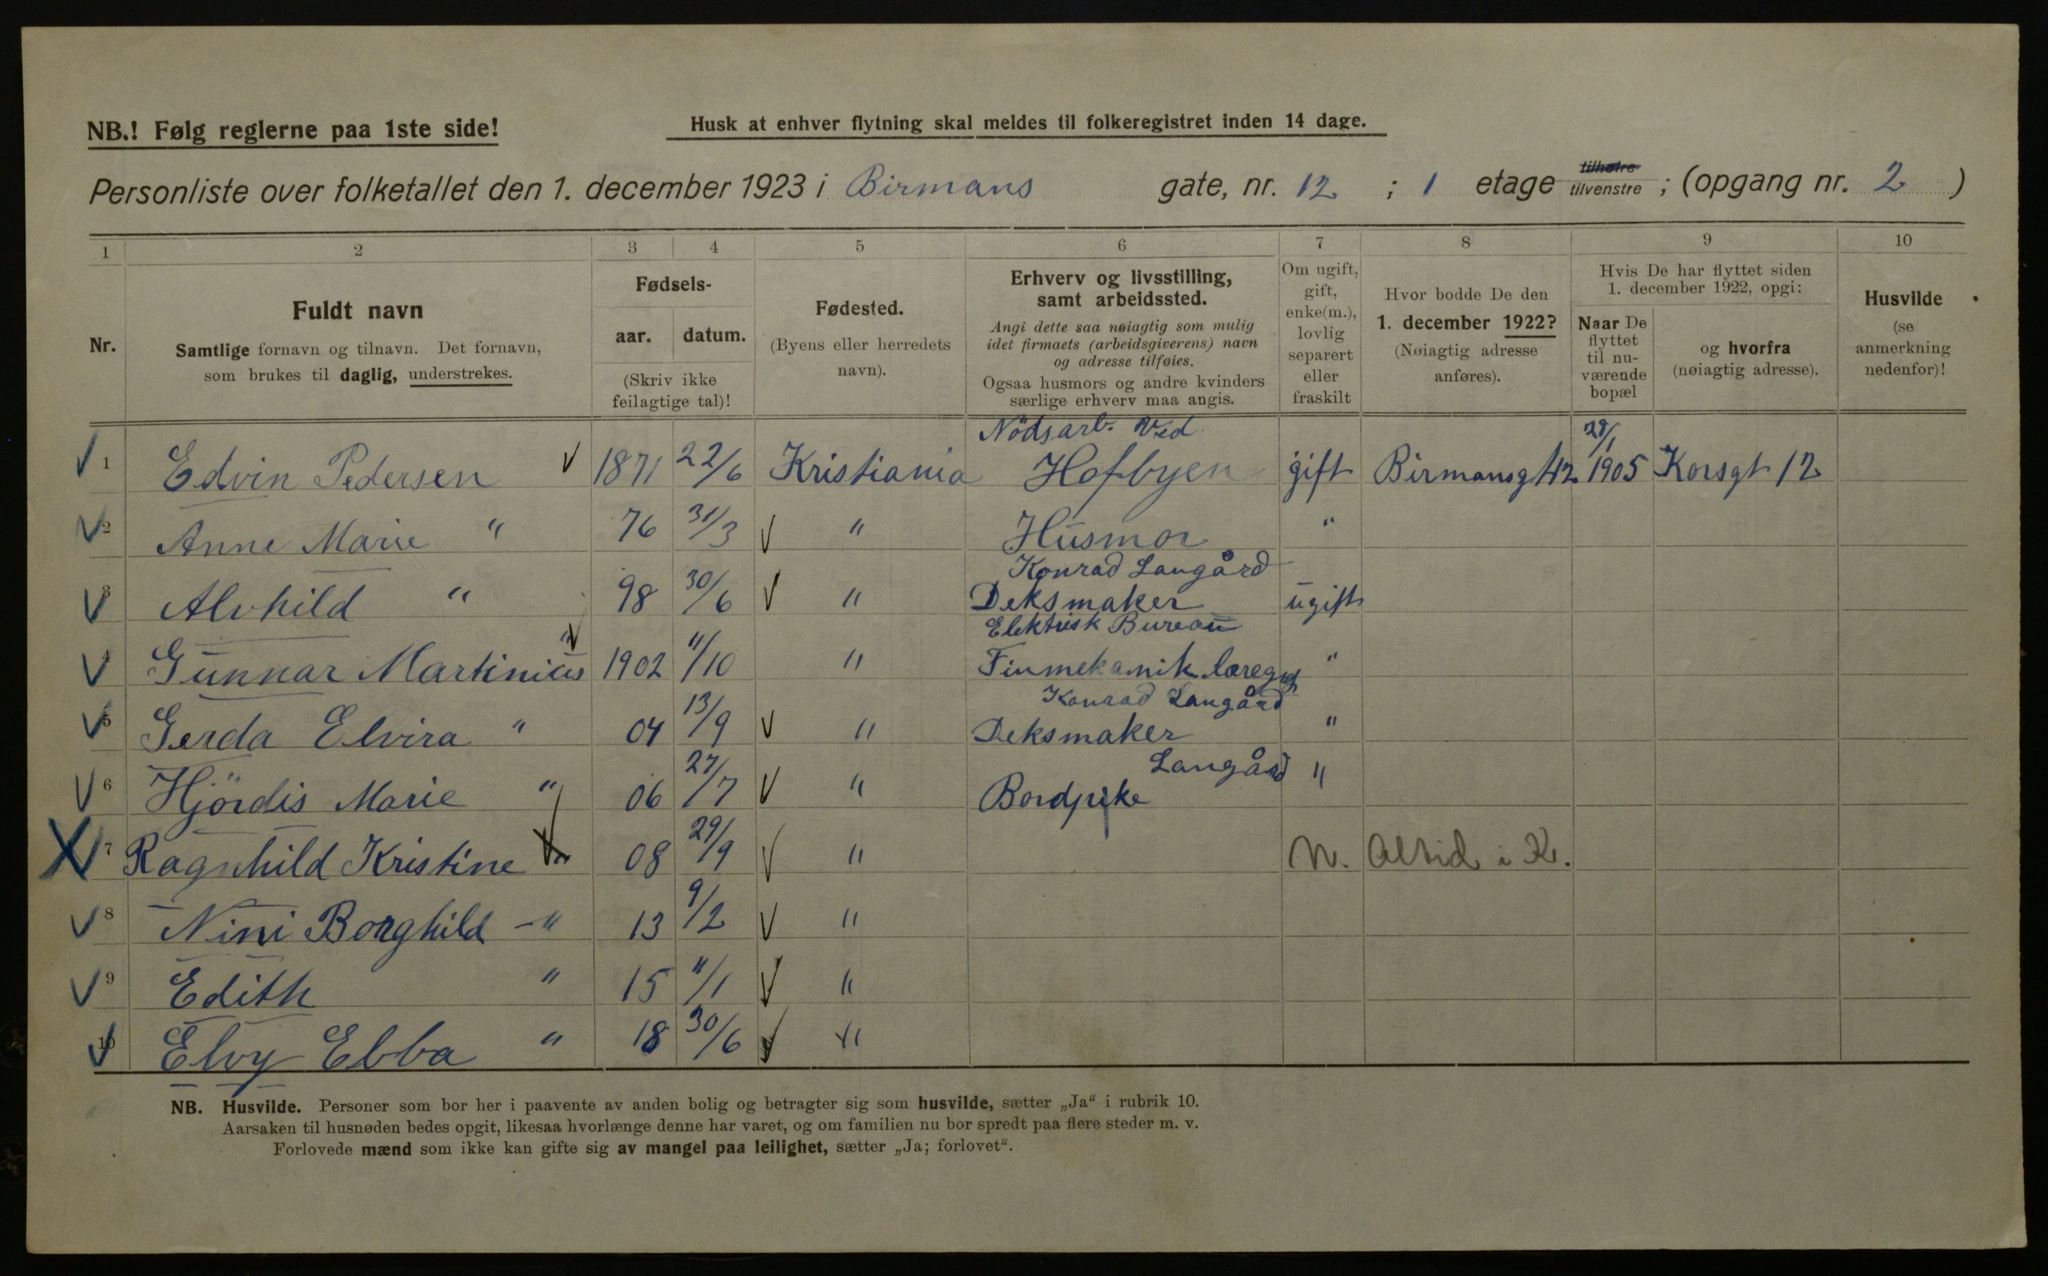 NB.! Følg reglerne paa 1ste side!
Husk at enhver flytning skal meldes til folkeregistret inden 14 dage.
Personliste over folketallet den 1. december 1923 i Birmans gate, nr. 12 ; 1 etage tilhøire tilvenstre ; (opgang nr. 2 )
1 2 3 4 5 6 7 8 9 10
Nr.
Fuldt navn
Samtlige fornavn og tilnavn. Det fornavn,
som brukes til daglig, understrekes.
Fødsels-
aar. datum.
(Skriv ikke
feilagtige tal)!
Fødested.
(Byens eller herredets
navn).
Erhverv og livsstilling,
samt arbeidssted.
Angi dette saa nøiagtig som mulig
idet firmaets (arbeidsgiverens) navn
og adresse tilføies.
Ogsaa husmors og andre kvinders
særlige erhverv maa angis.
Om ugift,
gift,
enke(m.),
lovlig
separert
eller
fraskilt
Hvor bodde De den
1. december 1922?
(Nøiagtig adresse
anføres).
Hvis De har flyttet siden
1. december 1922, opgi:
Naar De
flyttet
til nu-
værende
bopæl
og hvorfra
(nøiagtig adresse).
Husvilde
(se
anmerkning
nedenfor)!
Nödsarb. Ved
1 Edvin Pedersen 1871 22/6 Kristiania Hofbyen gift Birmansgt 12 1905 Korsgt 12
2 Anne Marie " 76 31/3 " Husmor "
Konrad Langård
3 Alvhild " 98 30/6 " Deksmaker ugift
Elektrisk Bureau
4 Gunnar Martinius " 1902 11/10 " Finmekanik læregut "
Konrad Langård
5 Gerda Elvira " 04 13/9 " Deksmaker "
Langård
6 Hjördis Marie " 06 27/7 " Bordpike "
7 Ragnhild Kristine " 08 29/9 " N. Altid i K.
8 Nini Borghild -" 13 9/2 "
9 Edith " 15 11/1 "
10 Elvy Ebba " 18 30/6 "
NB. Husvilde. Personer som bor her i paavente av anden bolig og betragter sig som husvilde, sætter „Ja“ i rubrik 10.
Aarsaken til husnøden bedes opgit, likesaa hvorlænge denne har varet, og om familien nu bor spredt paa flere steder m. v.
Forlovede mænd som ikke kan gifte sig av mangel paa leilighet, sætter „Ja; forlovet“.